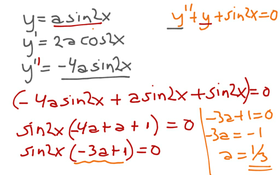 y = asin2x
y' = 2a cos2x
y" = -4asin2x
y" + y + sin2x = 0
(-4asin2x + asin2x + sin2x) = 0
sin2x (-4a + a + 1) = 0
sin2x (-3a + 1) = 0
-3a + 1 = 0
-3a = -1
a = 1/3